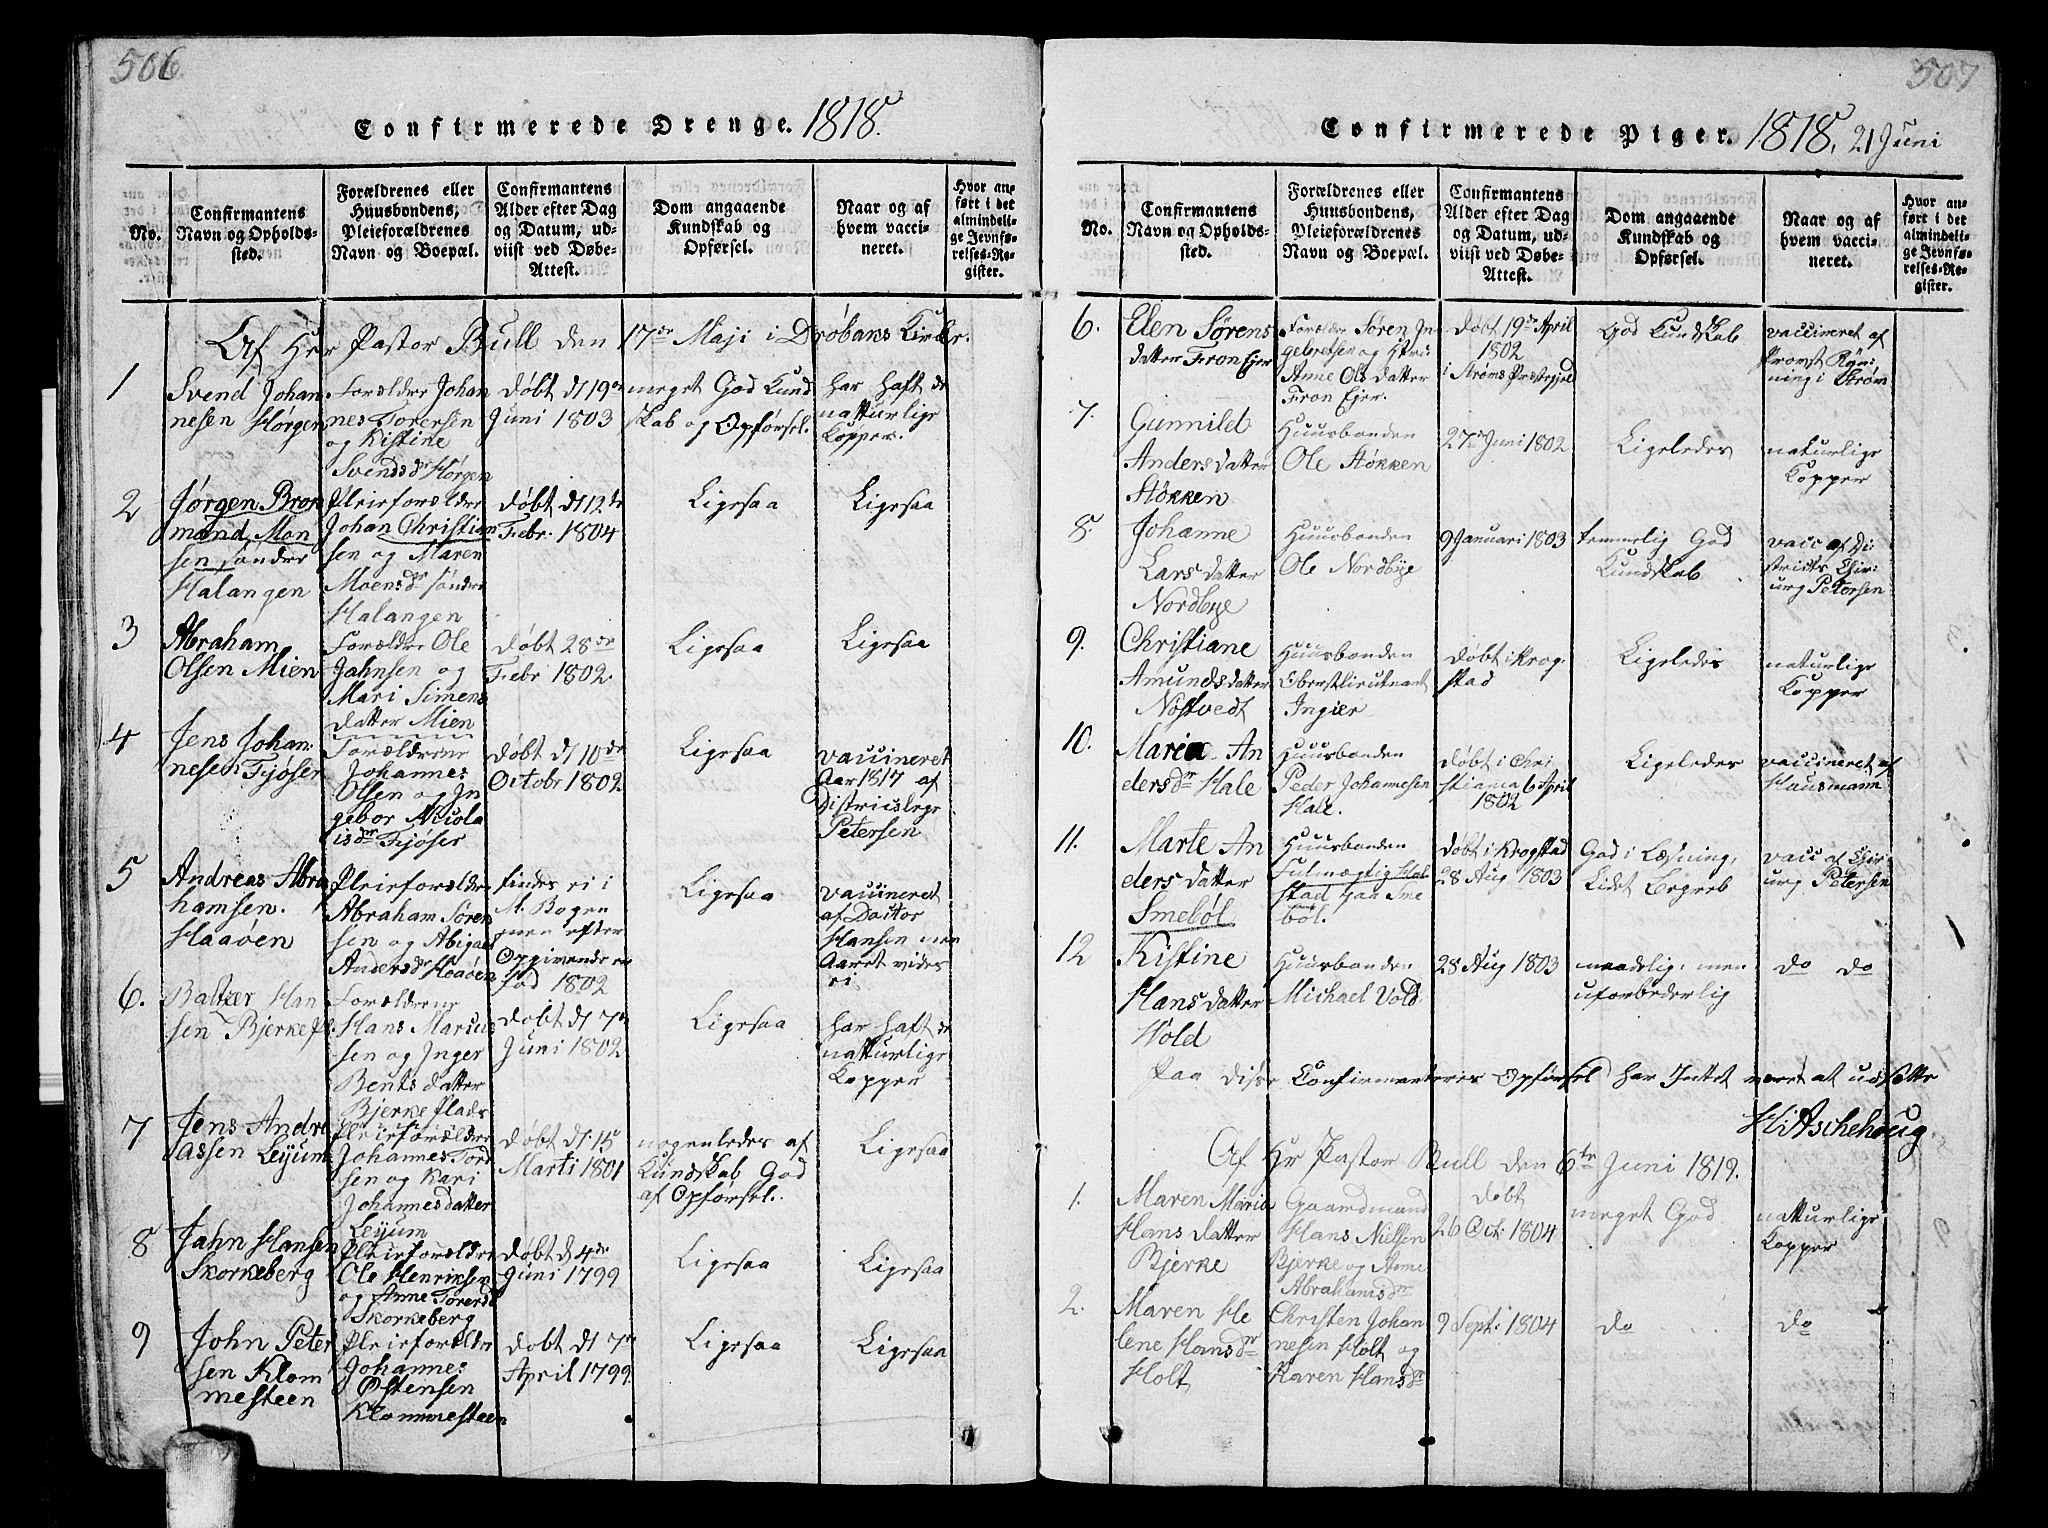 506.
Confirmerede Drenge. 1818.
No.
Confirmantens Navn og Opholds-sted.
Forældrenes eller Huusbondens, Pleieforældrenes Navn og Boepæl.
Confirmantens Alder efter Dag og Datum, ud-viist ved Døbe-Attest.
Dom angaaende Kundskab og Opførsel.
Naar og af hvem vacci-neret.
Hvor an-ført i det almindeli-ge Jevnfø-relses-Re-gister.
Af Hr Pastor Bull den 17de Maji i Drøbaks Kirke.
1
Svend Johan
nesen Hørgen
Forældre Johan
nes Torersen
og Kistine
Svendsdr Hørgen
Døbt d 19de
Juni 1803
meget God Kund
skab og Opførsel.
har haft de
natturlige
Kopper.
2
Jørgen Bron
mand Mon
sen søndre
Halangen
Pleieforældre
Johan Christian
sen og Maren
Moensdr søndre
Halangen
Døbt d 12de
Febr. 1804
Ligesaa
Ligesaa
3
Abraham
Olsen Mien
Forældre Ole
Jahnsen og
Mari Simens
datter Mien
Døbt 28de
Febr 1802.
Ligesaa
Ligesaa
4
Jens Johan
nesen Fjøser
Forældrene
Johannes
Olsen og In
gebor Nicola
isdr Fjøser
Døbt d 10de
Octobr 1802
Ligesaa
vaccineret
Aar 1817 af
Districslege
Petersen
5
Andreas Abra
hamsen.
Haaøen
Pleieforældre
Abraham Søren
sen og Abigael
Andersdr Haaøen
findes ei i
M. Bogen
men efter
Opgivende er
fød 1802
Ligesaa
vaccineret
af Doctor
Hansen men
Aaret vides
ei
6.
Baltzer Han
sen Bjerkepl.
Forældrene
Hans Marcus
sen og Inger
Bents datter
Bjerke Plads
Døbt d 7de
Juni 1802
Ligesaa
har haft de
natturlige
Kopper
7
Jens Andre
assen Leyum
Pleieforældre
Johannes Tord
sen og Kari
Johannesdatter
Leyum
Døbt d. 15
Marti 1801
nogenledes af
Kundskab God
af Opførsel.
Ligesaa
8
Jahn Hansen
Skorkeberg
Pleieforældre
Ole Henriksen
og Anne Torersdr
Skorkeberg
Døbt d 4de
Juni 1799
Ligesaa
Ligesaa
9
John Peter
sen Klom
mesteen
Pleieforældre
Johannes
Østensen
Klommesteen
Døbt d 7de
April 1799.
Ligesaa
Ligesaa
507
Confirmerede Piger. 1818, 21 Juni
No.
Confirmantens Navn og Opholds-sted.
Forældrenes eller Huusbondens, Pleieforældrenes Navn og Boepæl.
Confirmantens Alder efter Dag og Datum, ud-viist ved Døbe-Attest.
Dom angaaende Kundskab og Opførsel.
Naar og af hvem vacci-neret.
Hvor an-ført i det almindeli-ge Jevnfø-relses-Re-gister.
6.
Elen Sørens
datter Fron Ejer
Forældre Søren In
gebretsen og
Anne Ols datter
Fron Ejer.
døbt 19de April
1802
i Strøms Præstegjeld
God Kundskab
vaccineret af
Provst Ryn
ning i Strøm
7.
Gunnild
Anders datter
Støkken
Huusbonden
Ole Støkken
27de Juni 1802
Ligeledes
naturlige
Kopper
8.
Johanne
Lars datter
Nordbye
Huusbonden
Ole Nordbye
9 Januari 1803
temmelig God
Kundskab
vacc af Di
stricts Chir
urg Petersen
9.
Christiane
Amunds datter
Nøstvedt
Huusbonden
Oberstlieutnant
Ingier
døbt i Krog
stad
Ligeledes
naturlige
Kopper
10.
Maria An
dersdr Hale
Huusbonden
Peder Johannesen
Hale.
døbt i Chri
stiania 6 April
1802
Ligeledes
vaccineret af
Hausmann
11.
Marte An
ders datter
Smebøl
Huusbonden
Fulmægtig Hal
stad paa Sme
bøl.
døbt i Krogstad
28 Aug 1803
God i Læsning,
Lidet Begreb
vacc af Chir
urg Petersen
12
Kistine
Hans datter
Wold
Huusbonden
Michael Vold.
28 Aug 1803
maadelig men
uforbederlig
do do
Paa disse Confirmanteres Opførsel har Intet været at udsætte
H Aschehoug
Af Hr Pastor Bull den 6te Juni 1819.
1.
Maren Maria
Hans datter
Bjerke
Gaardmand
Hans Nielsen
Bjerke og Anne
Abrahamsdr
Døbt
26 Oct: 1804
meget God
natturlige
Kopper
2.
Maren He
lene Hansdr
Holt
Christen Johan
nesen Holt og
Karen Hansdr
9 Sept: 1804
do
do